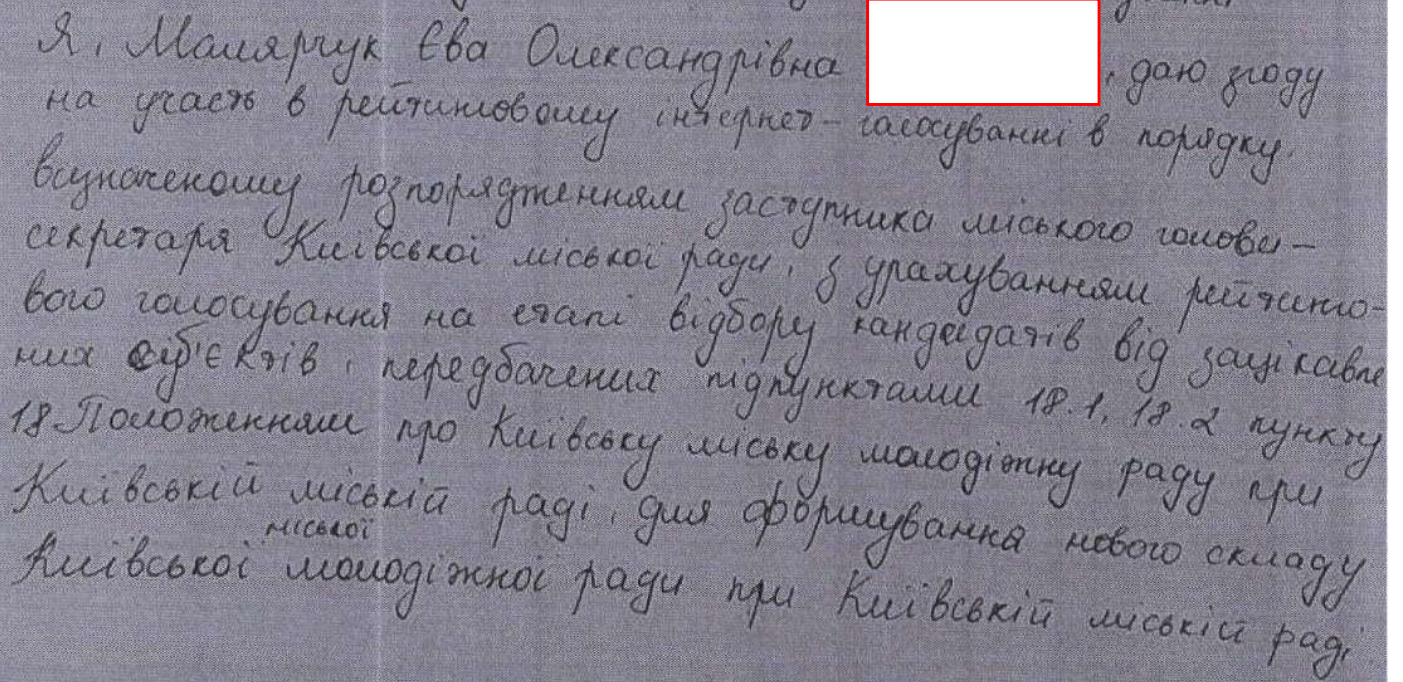 Я, Малярчук Єва Олександрівна , даю згоду
на участь в рейтинговому інтернет-голосуванні в порядку,
визначеному розпорядженням заступника міського голови-
секретаря Київської міської ради, з урахуванням рейтинго-
вого голосування на етапі відбору кандидатів від зацікавле
них суб'єктів, передбачених підпунктами 18.1, 18.2 пункту
18 Положенням про Київську міську молодіжну раду при
Київській міській раді, для формування нового складу
міської
Київської молодіжної ради при Київській міській раді